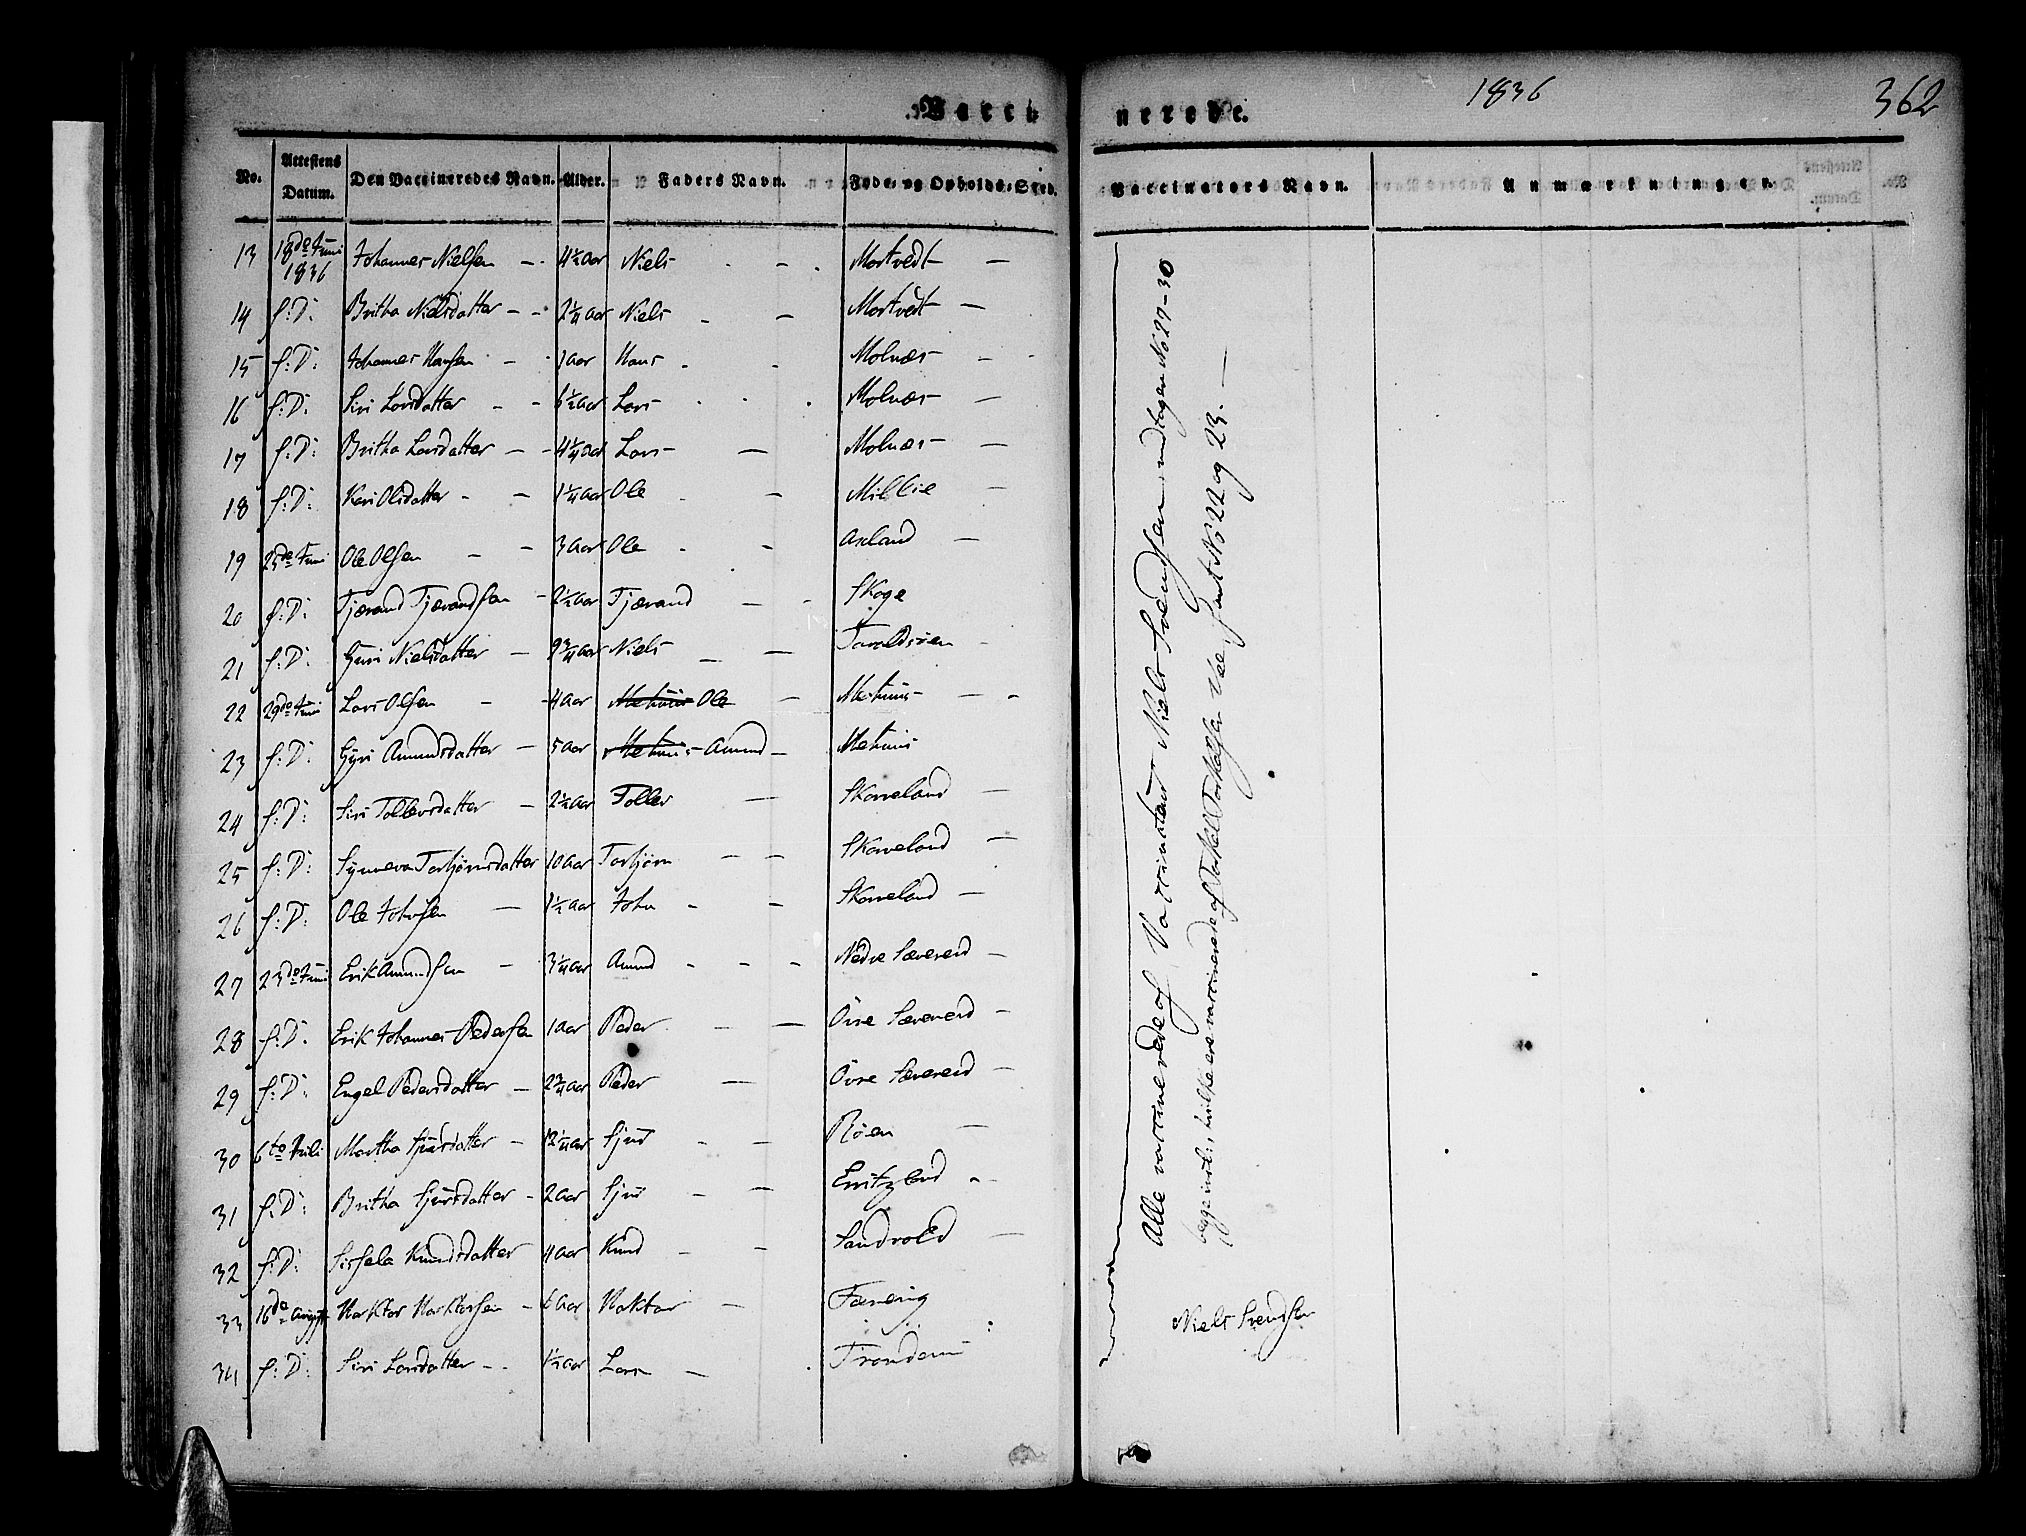 Vacci nerede. 1836 362
No. Attestens Datum. Den Vaccineredes Navn. Alder. Faders Navn. Føde- og Opholds-Sted. Vaccinators Navn. Anmærkninger.
13 18de Juni 1836 Johannes Nielsen 4½ Aar Niels Mortvedt
14 s: D: Britha Nielsdatter 2¼ Aar Niels Mortvedt
15 s: D: Johannes Hansen 1 Aar Hans Molnæs
16 s: D: Siri Larsdatter 6½ Aar Lars Molnæs
17 s: D: Britha Larsdatter 4¼ Aar Lars Molnæs
18 s: D: Kari Olsdatter 1¼ Aar Ole Millie
19 25de Juni Ole Olsen 3 Aar Ole Axland
20 s: D: Tjærand Tjærandsen 2½ Aar Tjærand Skoge
21 s: D: Guri Nielsdatter 9¾ Aar Niels
22 29de Juni Lars Olsen 4 Aar Mehuus Ole Mehuus
23 s: D: Gyri Amundsdatter 5 Aar Mehuus Amund Mehuus
24 s: D: Siri Tollevsdatter 2½ Aar Tollev Skorveland
25 s: D: Synneva Torbjørnsdatter 10 Aar Torbjørn Skorveland
26 s: D: Ole Johnsen 1½ Aar John Skorveland
27 23de Juni Erik Amundsen 3¼ Aar Amund Nedre Sævereid
28 s: D: Erik Johannes Pedersen 1 Aar Peder Øvre Sævereid
29 s: D: Engel Pedersdatter 2¾ Aar Peder Øvre Sævereid
30 6te Juli Martha Sjursdatter Sjur Røen
31 s: D: Britha Sjursdatter 2 Aar Sjur
32 s: D: Sissela Knudsdatter 4 Aar Knud Sandvold
33 16de August Haktor Haktorsen 6 Aar Haktor
34 s: D: Siri Larsdatter 1½ Aar Lars
Alle vaccinerede af Vaccinateur Niels Svendsen undtagen No 27-30
begge incl:, hvilke ere vaccinerede af Torkel Torkelsen Vee, samt No 22 og 23.
Niels Svendsen